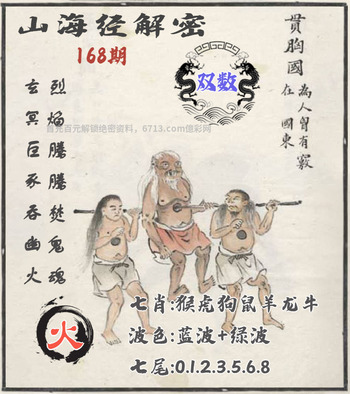 山海经解密
168期
双数
贯胸國
為人曾有竅
在國東
首充百元解锁绝密资料，6713.com億彩网
烈焰騰騰燃鬼魂
玄冥巨豕吞幽火
火
七肖:猴虎狗鼠羊龙牛
波色:蓝波+绿波
七尾:0.1.2.3.5.6.8